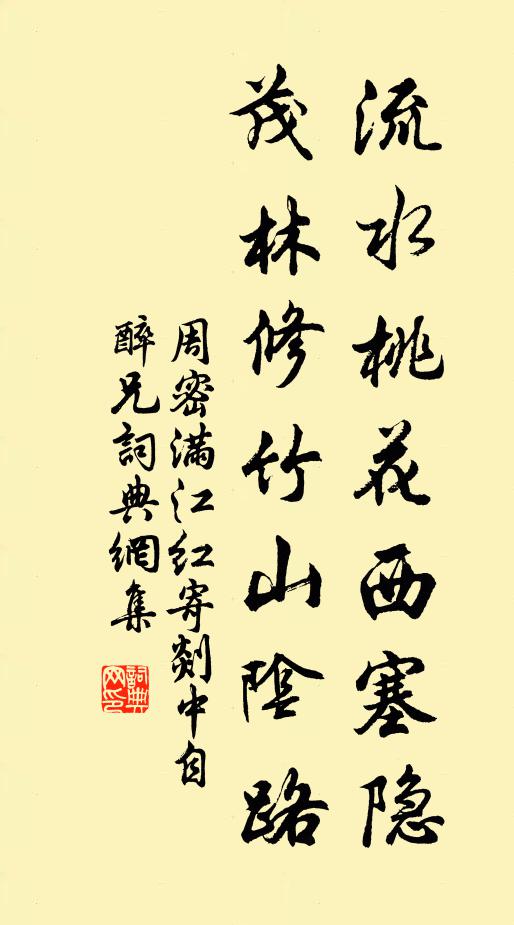 流水桃花西塞隐
茂林修竹山陰路
周密满江红寄剡中自
醉兄詞典網集
詞典網印